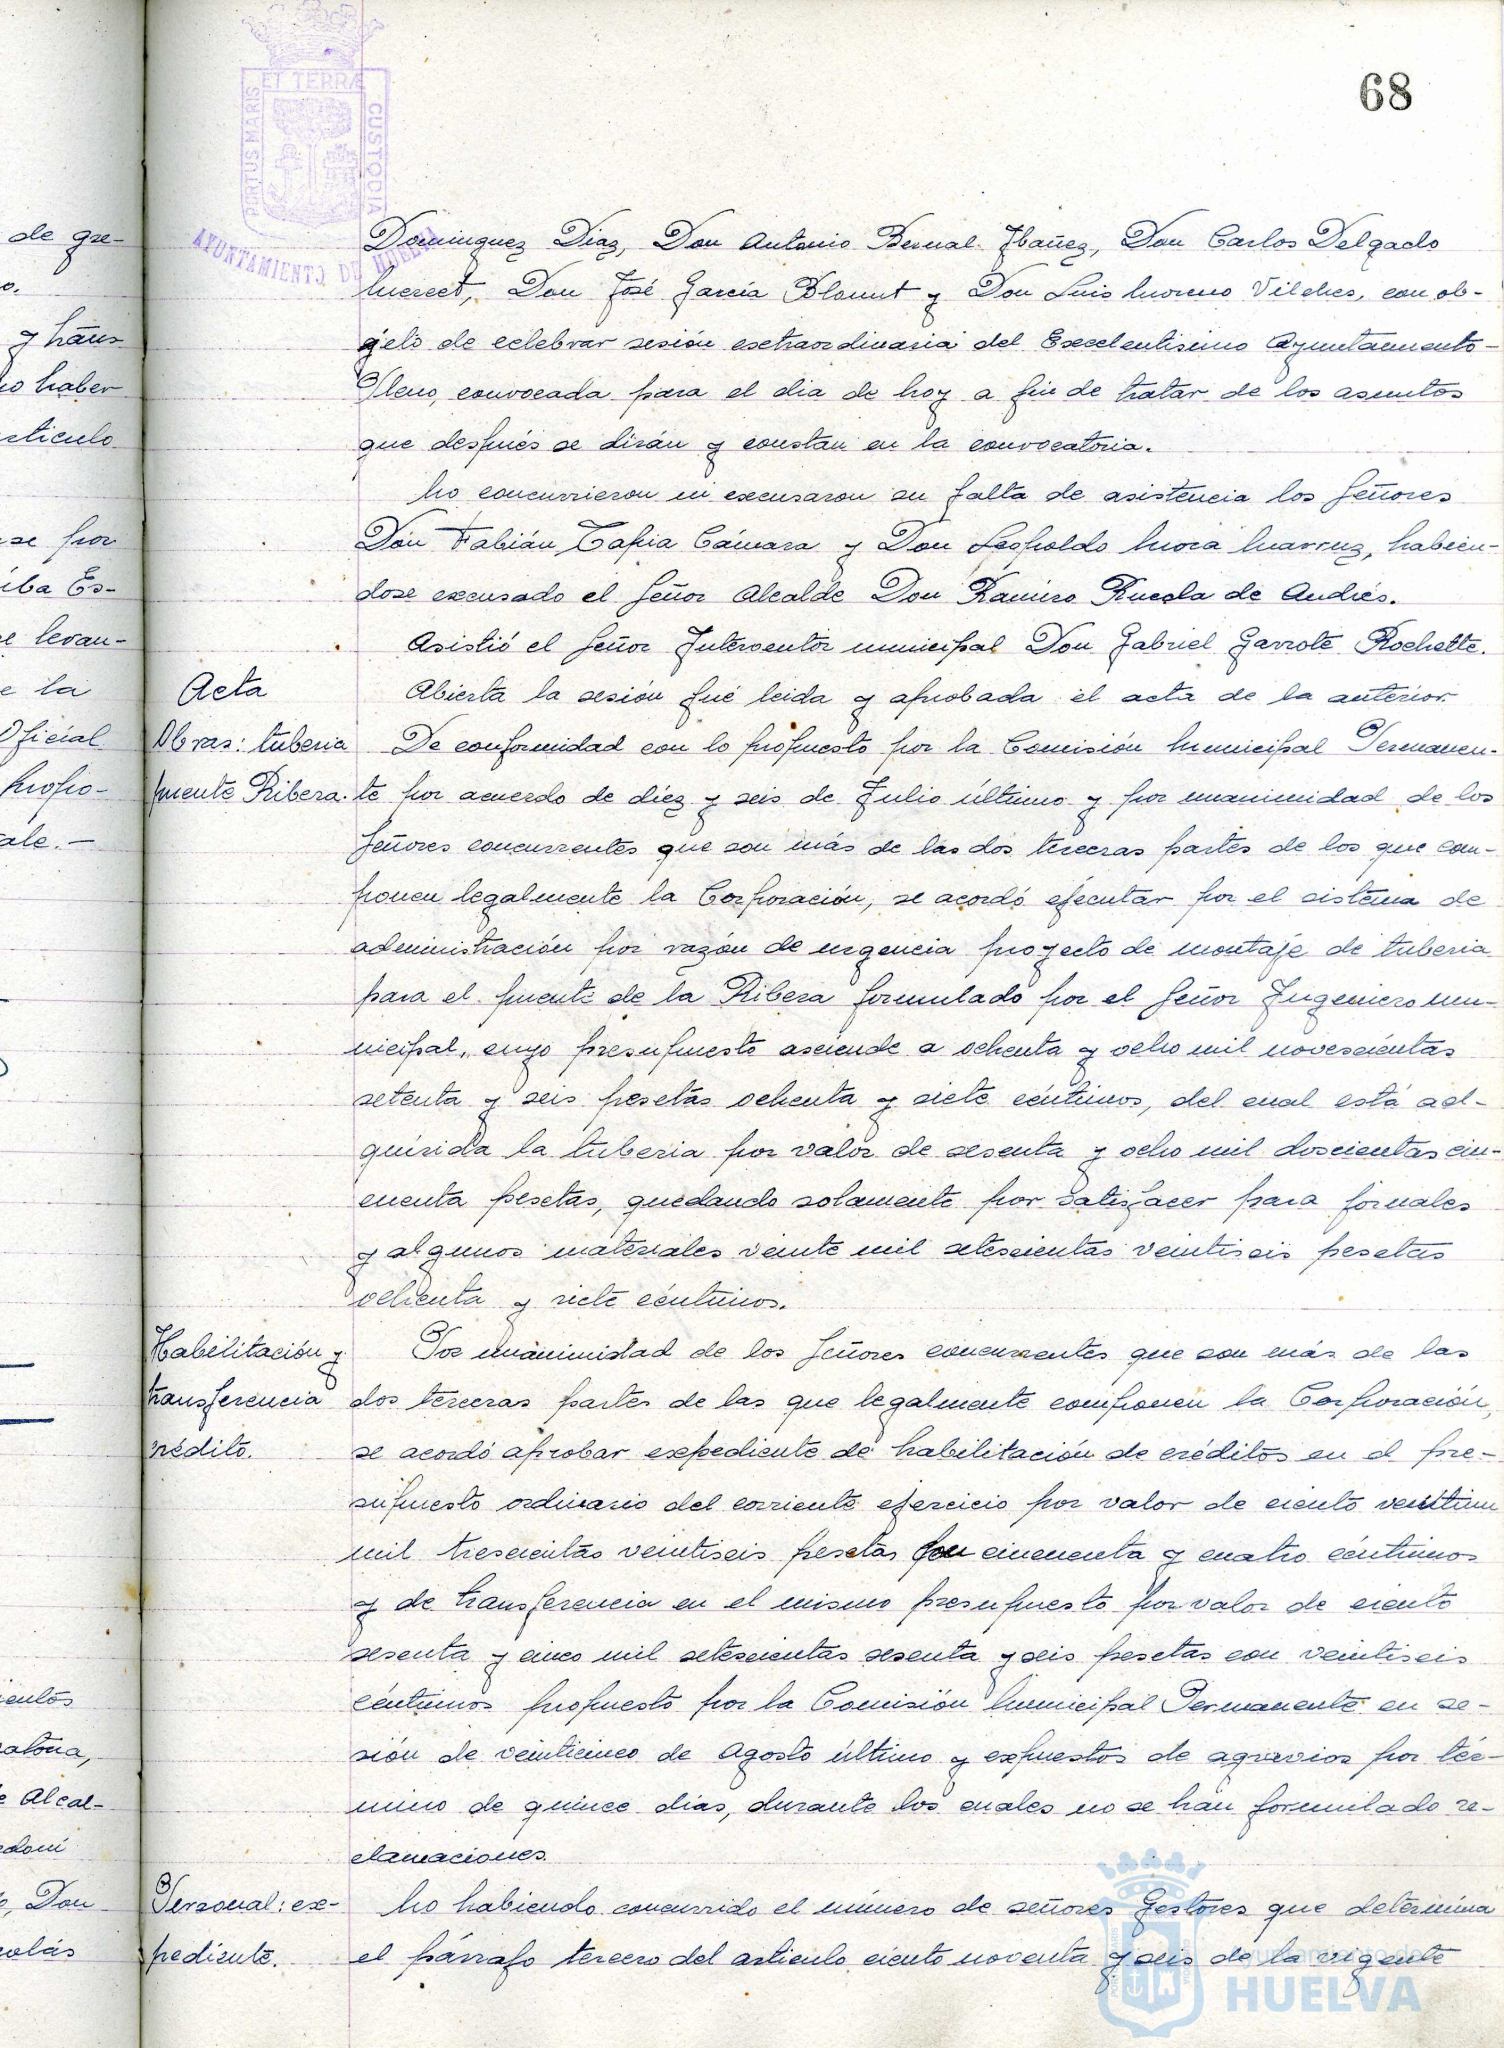 68
PORTUS MARIS ET TERRÆ CUSTODIA
AYUNTAMIENTO DE HUELVA
Dominguez Diaz, Don Antonio Bernal Ibañez, Don Carlos Delgado
Don José García Blount y Don Luis Moreno Vilches, con ob-
jeto de celebrar sesión extraordinaria del Excelentisimo Ayuntamiento-
Pleno, convocada para el dia de hoy a fin de tratar de los asuntos
que después se dirán y constan en la convocatoria.
No concurrieron ni excusaron su falta de asistencia los Señores
Don Fabián Tapia Cámara y Don Leopoldo Mora habien-
dose excusado el Señor Alcalde Don Ramiro Rueda de Andrés.
Asistió el Señor Interventor municipal Don Gabriel Garrote Rochette.
Acta
Abierta la sesión fué leida y aprobada el acta de la anterior.
Obras: tuberia
puente Ribera.
De conformidad con lo propuesto por la Comisión Municipal Permanen-
te por acuerdo de diez y seis de Julio último y por unanimidad de los
Señores concurrentes que son más de las dos terceras partes de los que com-
ponen legalmente la Corporación, se acordó ejecutar por el sistema de
administración por razón de urgencia proyecto de montaje de tuberia
para el puente de la Ribera formulado por el Señor Ingeniero mu-
nicipal, cuyo presupuesto asciende a ochenta y ocho mil novescientas
setenta y seis pesetas ochenta y siete céntimos, del cual está ad-
quirida la tuberia por valor de sesenta y ocho mil doscientas cin-
cuenta pesetas, quedando solamente por satisfacer para jornales
y algunos materiales veinte mil setescientas veintiseis pesetas
ochenta y siete céntimos.
Habilitación y
transferencia
crédito.
Por unanimidad de los Señores concurrentes que son más de las
dos terceras partes de las que legalmente componen la Corporación,
se acordó aprobar expediente de habilitación de créditos en el pre-
supuesto ordinario del corriente ejercicio por valor de ciento veintiun
mil trescientas veintiseis pesetas con cincuenta y cuatro céntimos
y de transferencia en el mismo presupuesto por valor de ciento
sesenta y cinco mil setescientas sesenta y seis pesetas con veintiseis
céntimos propuesto por la Comisión Municipal Permanente en se-
sión de veinticinco de Agosto último y expuestos de agravios por tér-
mino de quince dias, durante los cuales no se han formulado re-
clamaciones.
Personal: ex-
pediente.
No habiendo concurrido el número de señores Gestores que determina
el párrafo tercero del articulo ciento noventa y seis de la vigente
de gre-
o.
y trans
no haber
articulo
se por
iba Es-
se levan-
e la
Oficial
propo-
ale.-
ientos
atoria,
e Alcal-
, Don
olás
Ayuntamiento de
HUELVA